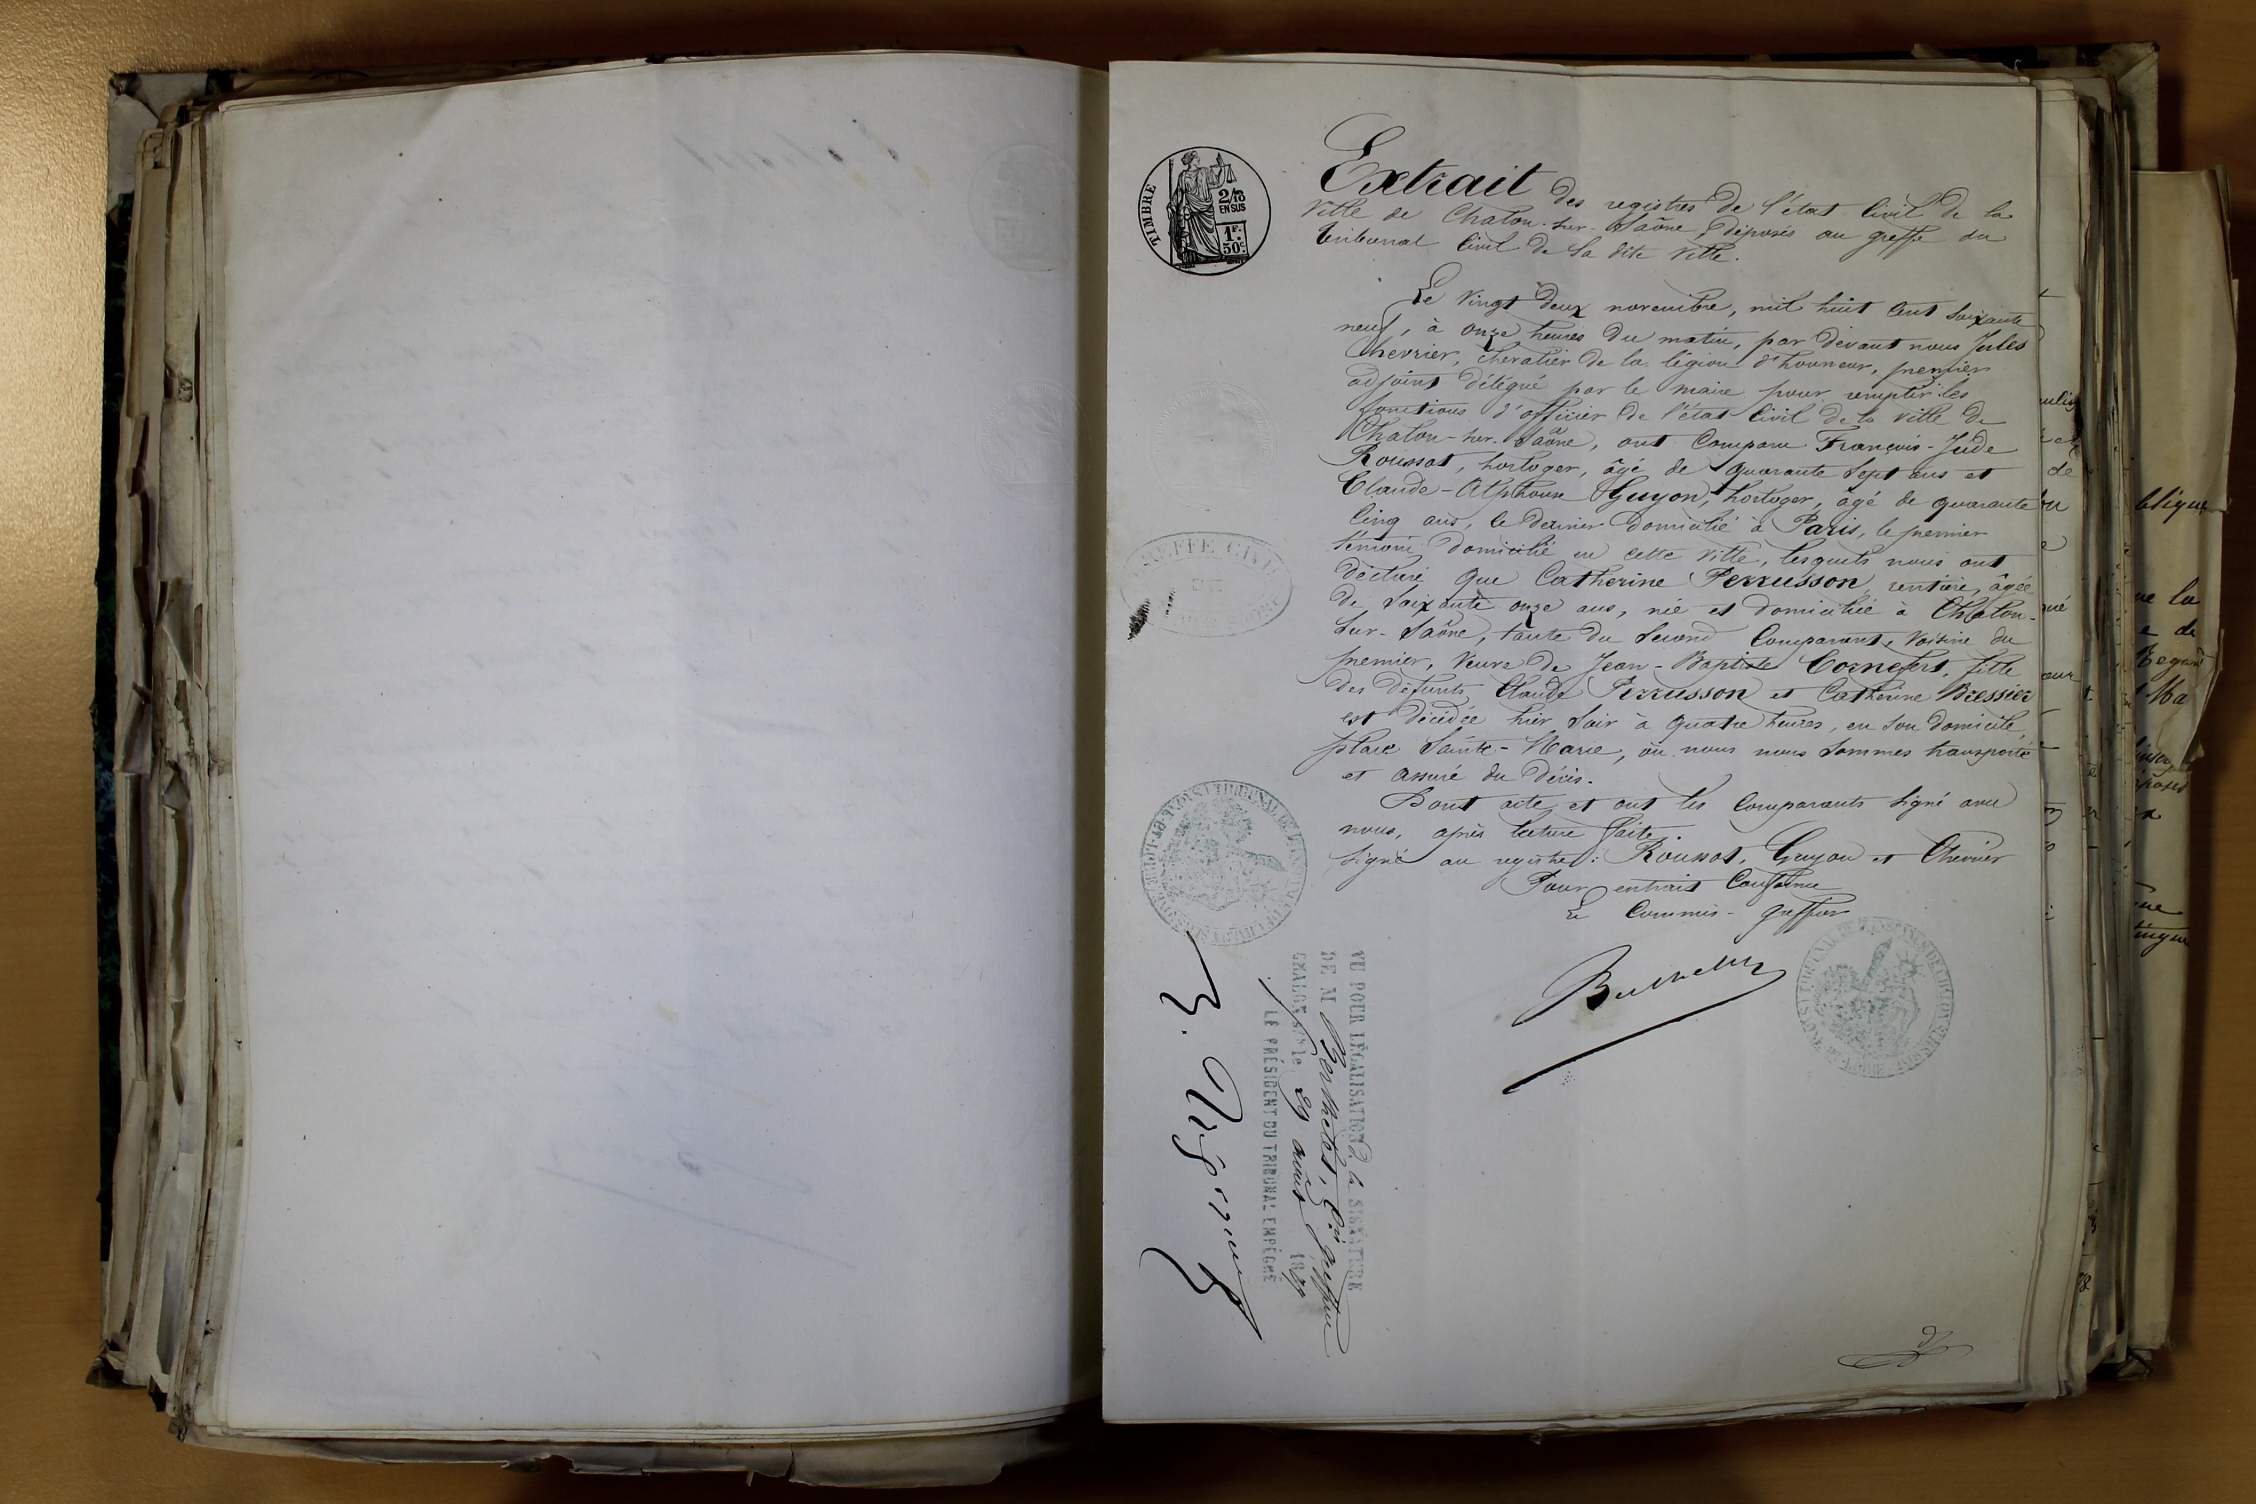 TIMBRE
2/10
EN SUS
1F.
50c
Extrait des registres de l'état civil de la
ville de Chalon-sur-Saône, déposés au greffe du
tribunal civil de la dite ville.
Le vingt deux novembre, mil huit cent soixante
neuf, à onze heures du matin, par devant nous Jules
Chevrier, chevalier de la légion d'honneur, premier
adjoint délégué par le maire pour remplir les
fonctions d'officier de l'état civil de la ville de
Chalon-sur-Saône, ont comparu François-Jude
Roussot, horloger, âgé de quarante sept ans et
Claude-Alphonse Guyon, horloger, âgé de quarante
cinq ans, le dernier domicilié à Paris, le premier
témoin domicilié en cette ville, lesquels nous ont
déclaré que Catherine Perrusson, rentière, âgée
de soixante onze ans, née et domiciliée à Chalon-
sur-Saône, tante du second comparant, voisine du
premier, veuve de Jean-Baptiste Cornefert, fille
des défunts Claude Perrusson et Catherine Bressier
est décédée hier soir à quatre heures, en son domicile,
place Sainte-Marie, où nous nous sommes transporté
et assuré du décès.
Dont acte et ont les comparants signé avec
nous, après lecture faite.
Signé au registre: Roussot, Guyon et Chevrier
Pour extrait conforme
Le Commis-greffier
GREFFE CIVIL
VU POUR LÉGALISATION de la SIGNATURE
DE M Berthelot, Cis greffier
CHALON S/S le 29 août 18
LE PRÉSIDENT DU TRIBUNAL EMPÊCHÉ